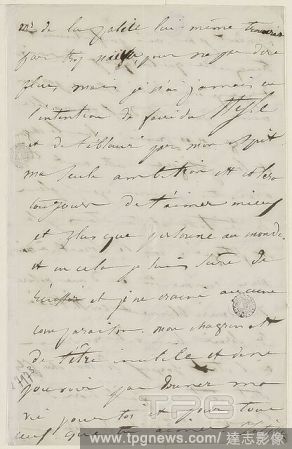 mr de la palice lui même
pour ne pas dire
plus, mais je n'ai jamais eu
l'intention de faire du style
et de t'éblouir par mon esprit
ma seule ambition est et sera
toujours de t'aimer mieux
et plus que personne au monde
et en cela je suis sûre de
et je ne crains aucune
comparaison. mon chagrin est
de t'être inutile et de ne
pouvoir pas donner ma
vie pour toi et pour tous
ceux que tu aimes
TPG
www.tpgnews.com 達志影像